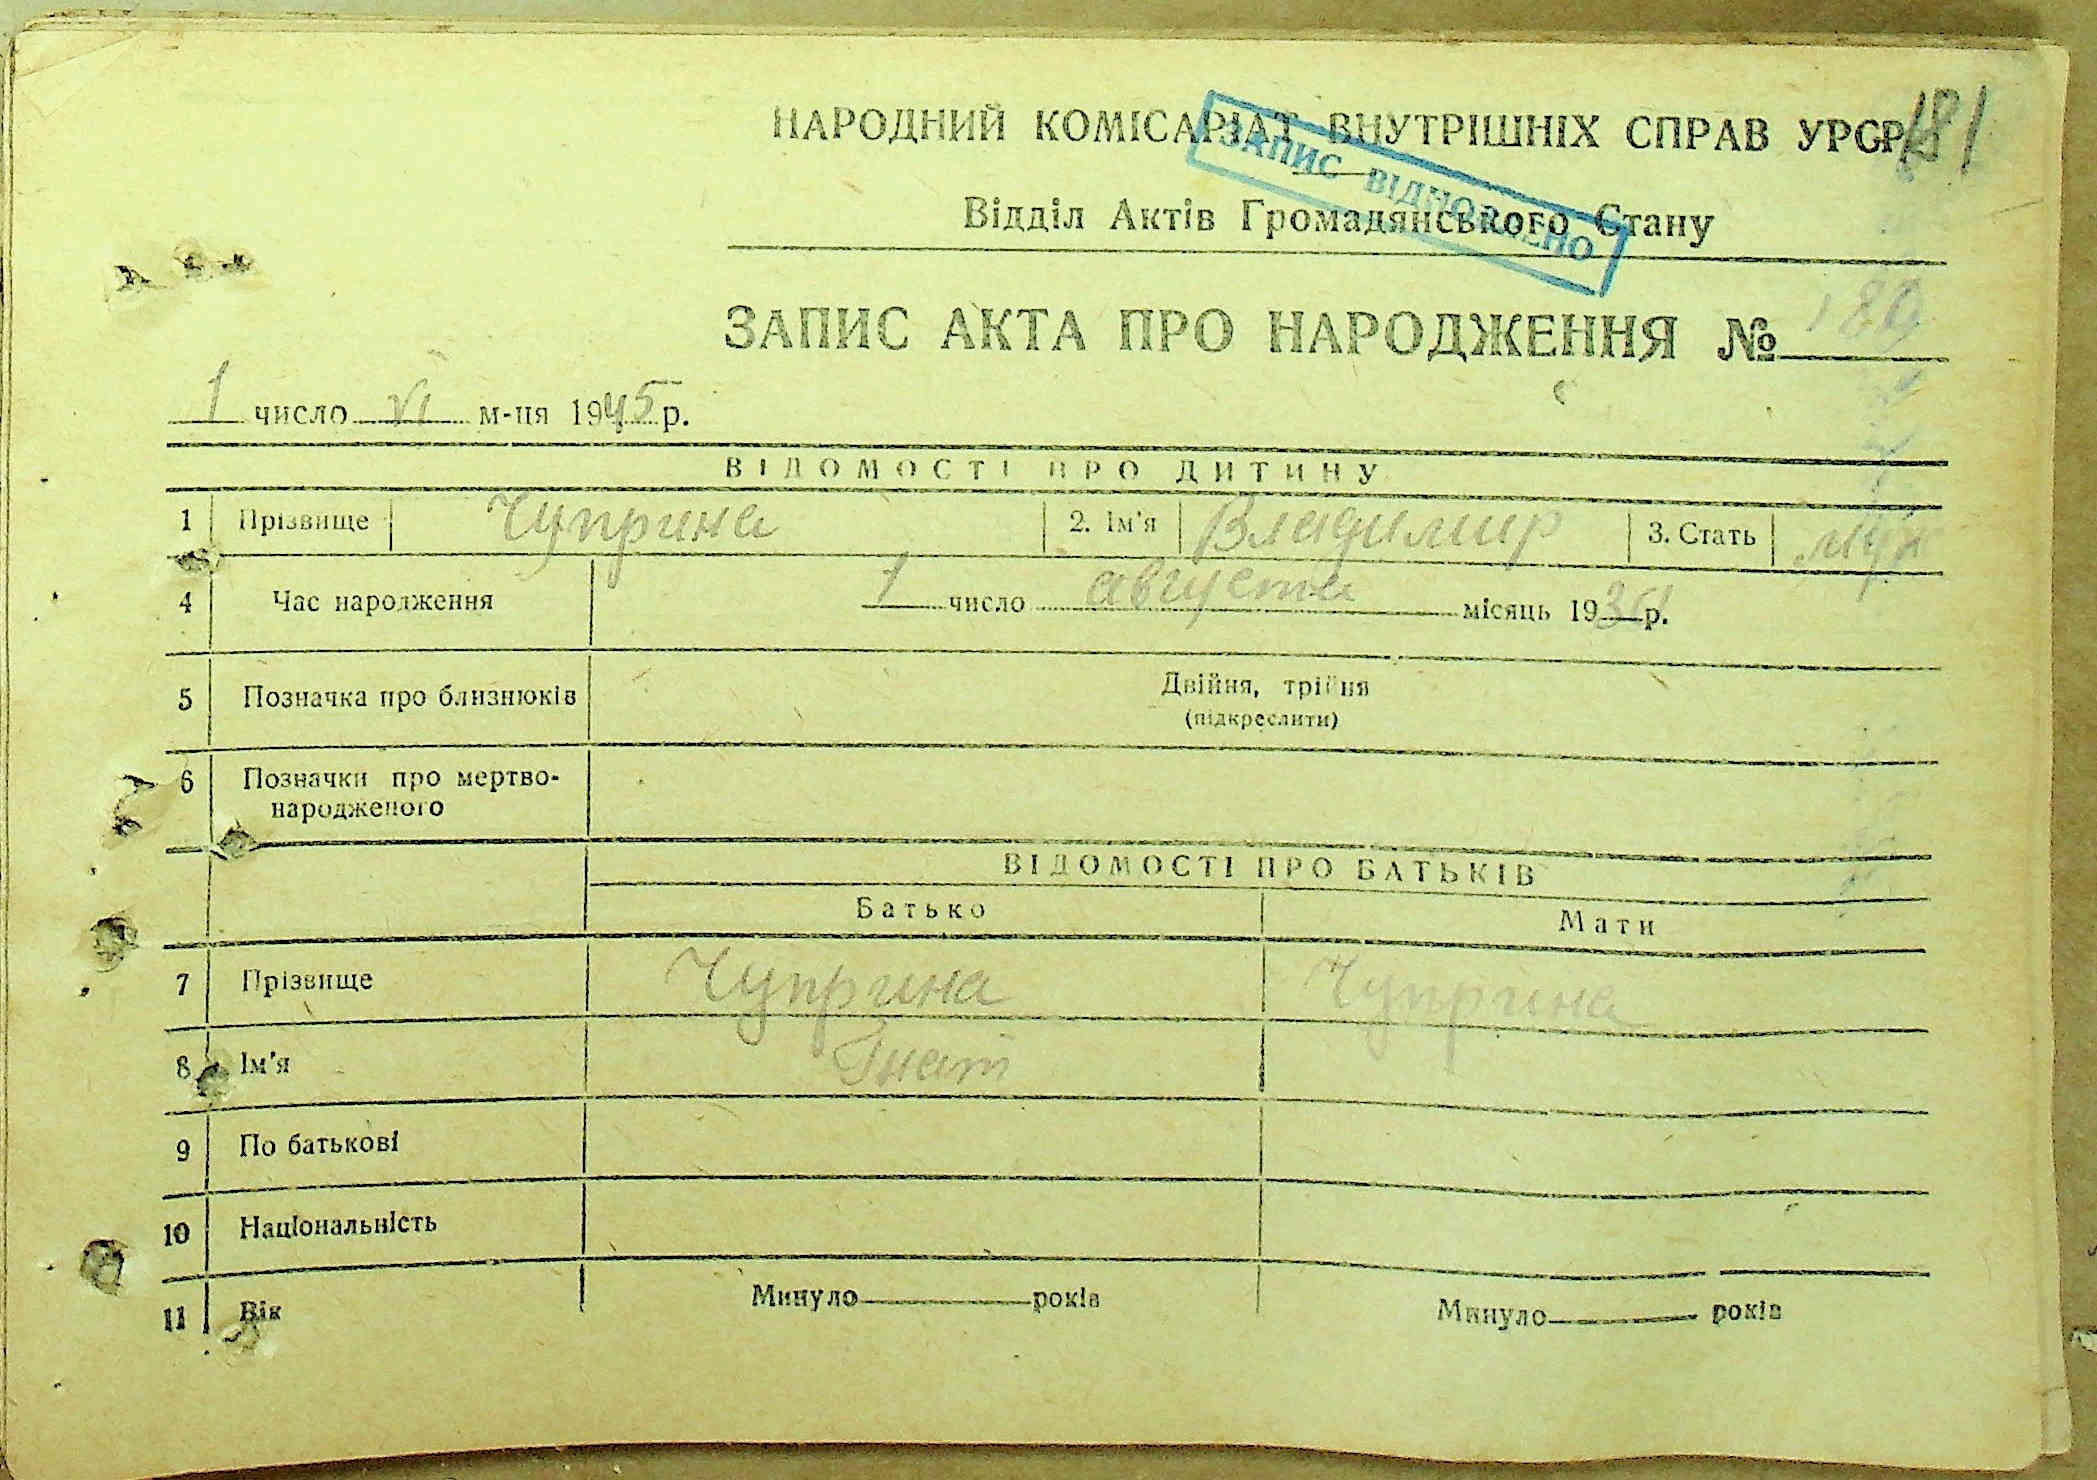 181
НАРОДНИЙ КОМІСАРІАТ ВНУТРІШНІХ СПРАВ УРСР
ЗАПИС ВІДНОВЛЕНО
Відділ Актів Громадянського Стану
ЗАПИС АКТА ПРО НАРОДЖЕННЯ № 180
1 число VI м-ця 1945 р.
ВІДОМОСТІ ПРО ДИТИНУ
1 Прізвище Чуприна 2. Ім'я Владимир 3. Стать муж
4 Час народження 1 число августа місяць 193 р.
5 Позначка про близнюків Двійня, трійня
(підкреслити)
6 Позначки про мертво-
народженого
ВІДОМОСТІ ПРО БАТЬКІВ
Батько Мати
7 Прізвище Чуприна Чуприна
8 Ім'я Гнат
9 По батькові
10 Національність
11 Вік Минуло років Минуло років